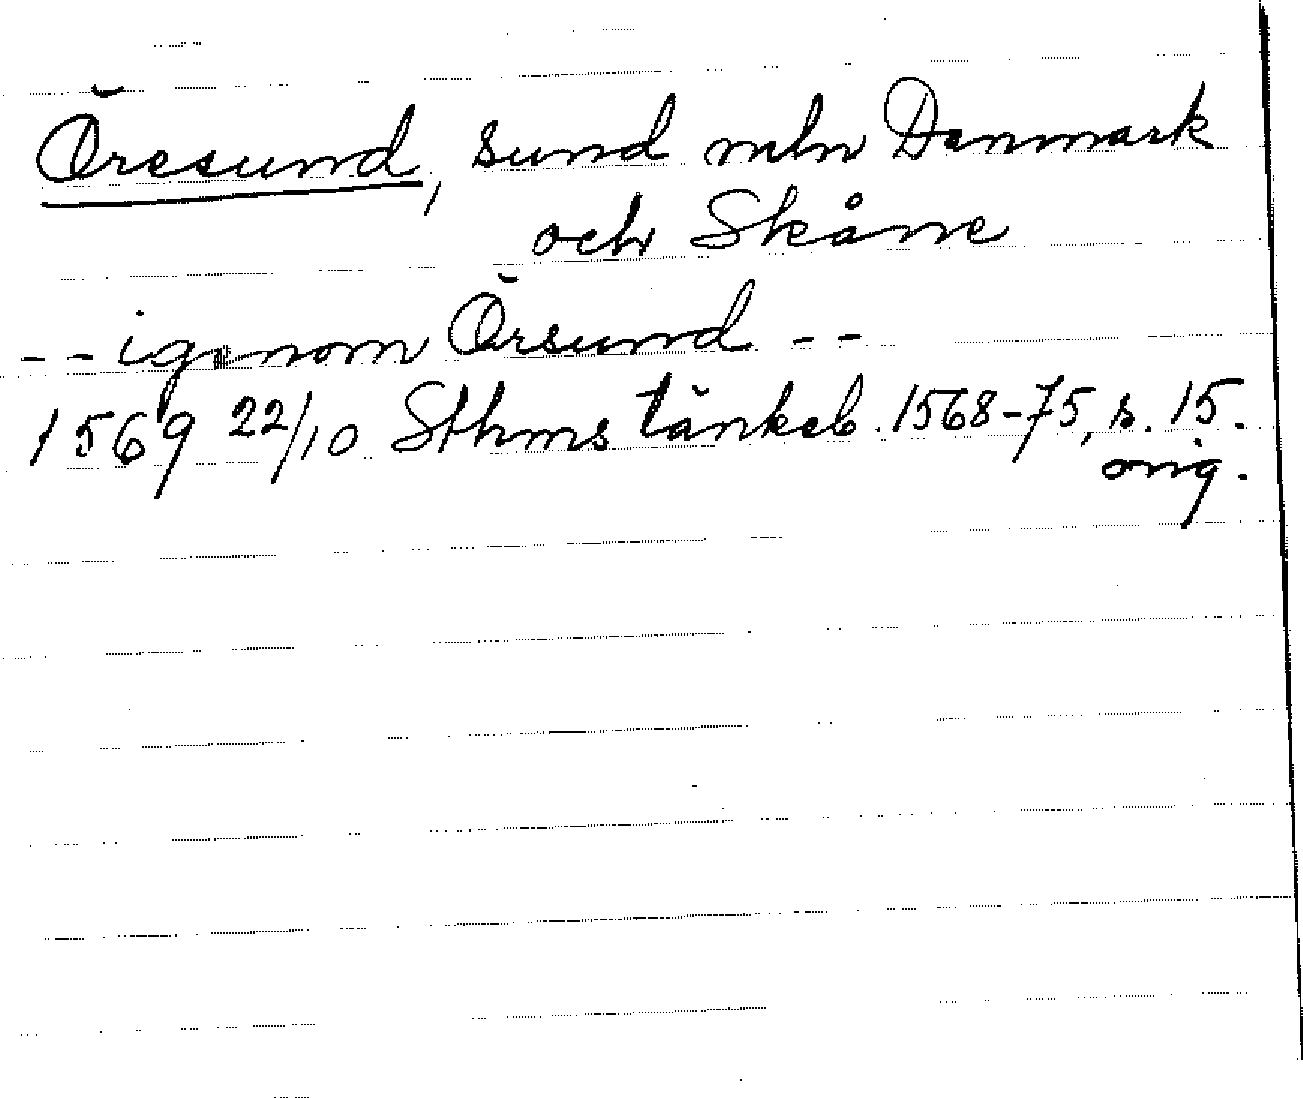 Öresund, sund mln Danmark
och Skåne
-- igenom Örsund --
1569 22/10 Sthms tänkeb. 1568-75, s. 15.
orig.